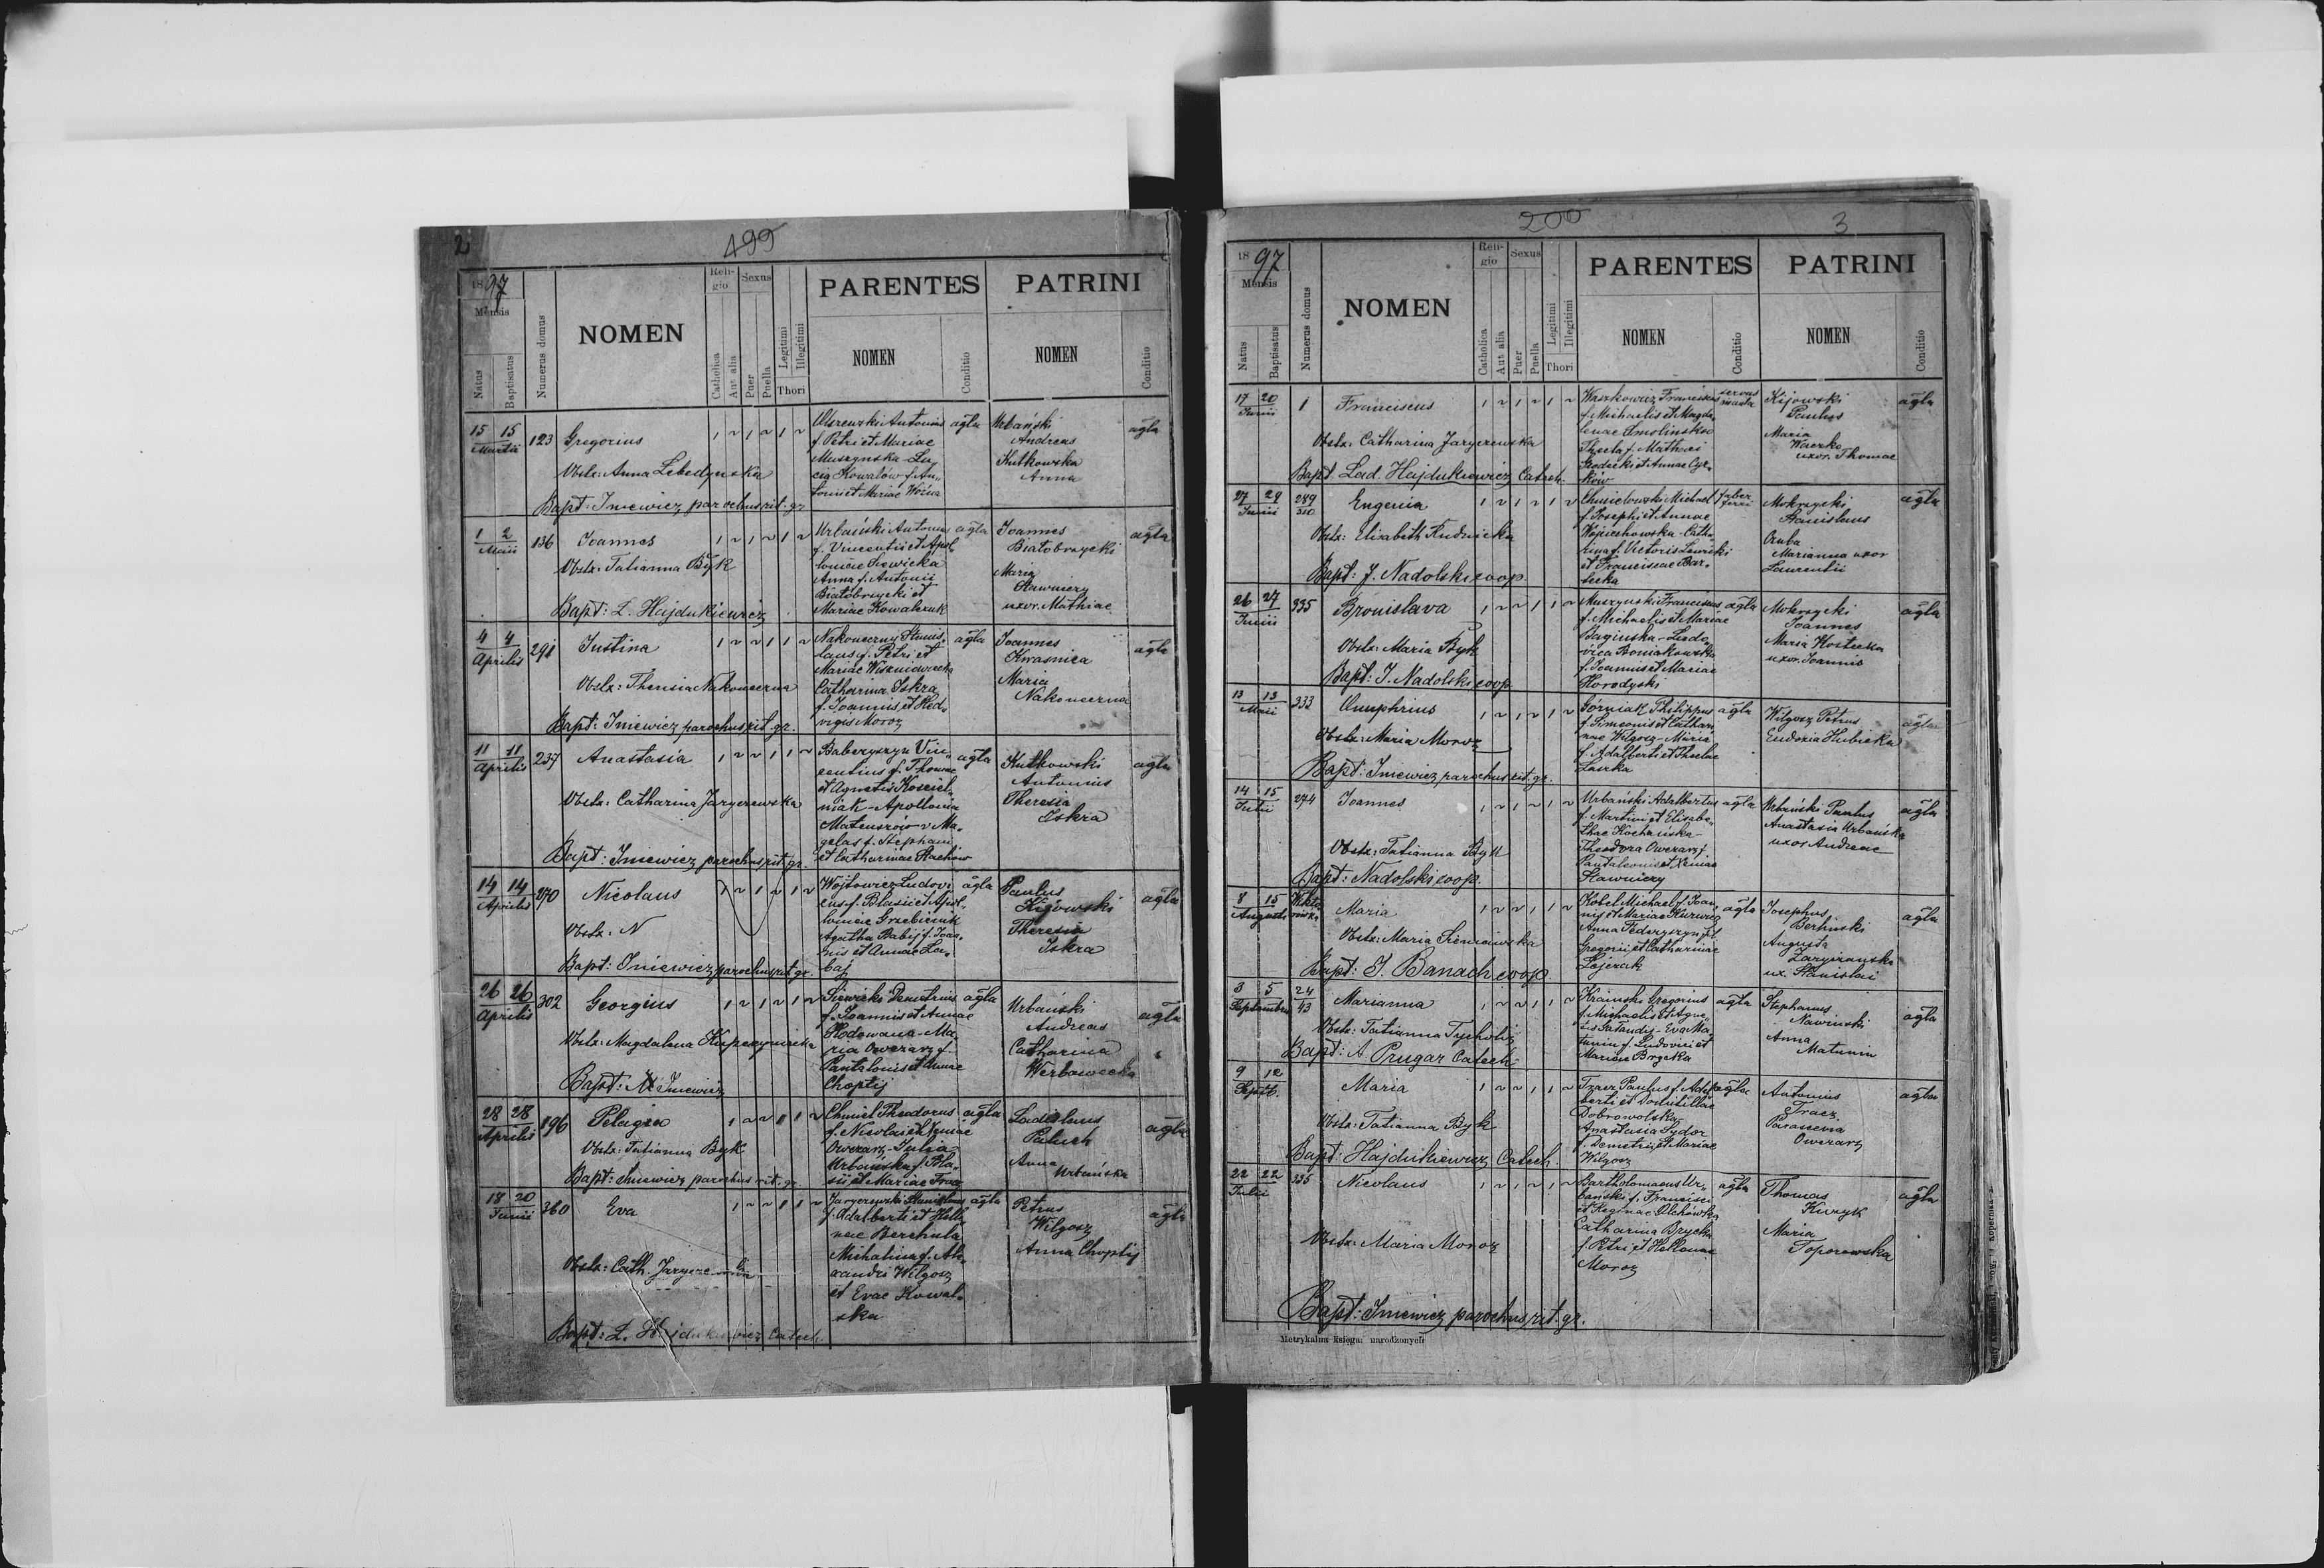 2
199
1897
Mensis
Natus
Baptisatus
Numerus domus
NOMEN
Reli-
gio
Catholica
Aut alia
Sexus
Puer
Puella
Legitimi
Illegitimi
Thori
PARENTES
NOMEN
Conditio
PATRINI
NOMEN
Conditio
15 15
Martii
123
Gregorius
1 ~ 1 ~ 1 ~
Obstx: Anna Lebedynska
Bapt: Iniewicz parochus rit. gr.
Olszewski Antonius
f. Petri et Mariae
Muszynska Lu-
cia Kowalów f. An-
tonii et Mariae Woźna
agla
Urbański
Andreas
Kutkowska
Anna
agla
1 2
Maii
136
Joannes
1 ~ 1 ~ 1 ~
Obstx: Tatianna Byk
Bapt: L. Hajdukiewicz
Urbański Antonius
f. Vincentii et Apol-
loniae Siewicka
Anna f. Antonii
Białobrzycki et
Mariae Kowalczuk
agla
Joannes
Białobrzycki
Maria
Sławniczy
uxor. Mathiae
agla
4 4
Aprilis
291
Justina
1 ~ ~ 1 1 ~
Obstx: Theresia Nakoneczna
Bapt: Iniewicz parochus rit. gr.
Nakoneczny Stanis-
laus f. Petri et
Mariae Wiszniowiecka
Catharina Iskra
f. Joannis et Hed-
vigis Moroz
agla
Joannes
Kwasnica
Maria
Nakoneczna
agla
11 11
Aprilis
237
Anastasia
1 ~ ~ 1 1 ~
Obstx: Catharina Jaryczewska
Bapt: Iniewicz parochus rit. gr.
Babczyszyn Vin-
centius f. Thomae
et Agnetis Kosciel-
niak - Apollonia
Mateuszów v Ma-
gelas f. Stephani
et Catharinae Stachów
agla
Kutkowski
Antonius
Theresia
Iskra
agla
14 14
Aprilis
270
Nicolaus
1 ~ 1 ~ 1 ~
Obstx: N
Bapt: Iniewicz parochus rit. gr.
Wojtowicz Ludovi-
cus f. Blasii et Apol-
loniae Grzebieniuk
Agatha Babij f. Joan-
nis et Annae La-
baj
agla
Paulus
Kijowski
Theresia
Iskra
agla
26 26
Aprilis
302
Georgius
1 ~ 1 ~ 1 ~
Obstx: Magdalena
Bapt: Iniewicz
Siewicki Demetrius
f. Joannis et Annae
Hodowana - Ma-
ria Owczarz f.
Pantaleonis et Annae
Choptij
agla
Urbański
Andreas
Catharina
Werbowecka
agla
28 28
Aprilis
196
Pelagia
1 ~ ~ 1 1 ~
Obstx: Tatianna Byk
Bapt: Iniewicz parochus rit. gr.
Chmiel Theodorus
f. Nicolai et Xeniae
Owczarz - Julia
Urbańska f. Bla-
sii et Mariae Tracz
agla
Ladislaus
Paluch
Anna
Urbańska
agla
18 20
Junii
360
Eva
1 ~ ~ 1 1 ~
Obstx: Cath. Jaryczewska
Bapt: L. Hajdukiewicz Catech.
Jaryczewski Stanislaus
f. Adalberti et Hele-
nae Berchula
Michalina f. Ale-
xandri Wilgosz
et Evae Kowal-
ska
agla
Petrus
Wilgosz
Anna Choptij
agla
200
3
1897
Mensis
Natus
Baptisatus
Numerus domus
NOMEN
Reli-
gio
Catholica
Aut alia
Sexus
Puer
Puella
Legitimi
Illegitimi
Thori
PARENTES
NOMEN
Conditio
PATRINI
NOMEN
Conditio
17 20
Junii
1
Franciscus
1 ~ 1 ~ 1 ~
Obstx: Catharina Jaryczewska
Bapt. Lad. Hajdukiewicz Catech.
Waszkowicz Franciscus
f. Michaelis et Magda-
lenae Smolinska
Thecla f. Mathaei
Grodecki et Annae Cyr-
ków
Kijowski
Paulus
Maria
Waczko
uxor. Thomae
agla
27 29
Junii
289
310
Eugenia
1 ~ 1 ~ 1 ~
Obstx: Elisabeth Rudnicka
Bapt: J. Nadolski coop.
Chmielowski Michael
f. Josephi et Annae
Wojciechowska - Catha-
rina f. Victoris Lawricki
et Franciscae Bar-
tecka
faber
ferri
Mokrzycki
Stanislaus
Oruba
Marianna uxor
Laurentii
agla
26 27
Junii
335
Bronislava
1 ~ ~ 1 1 ~
Obstx: Maria Byk
Bapt: J. Nadolski coop.
Muszynski Franciscus
f. Michaelis et Mariae
Baginska - Ludo-
vica Boniakowska
f. Joannis et Mariae
Horodyski
agla
Mokrzycki
Joannes
Maria Kostecka
uxor. Joannis
agla
13 13
Maii
333
Onuphrius
1 ~ 1 ~ 1 ~
Obstx: Maria Moroz
Bapt: Iniewicz parochus rit. gr.
Górniak Philippus
f. Simeonis et Cathari-
nae Wilgosz - Maria
f. Adalberti et Theclae
Laszka
agla
Wilgosz Petrus
Eudoxia Hubicka
agla
14 15
Julii
274
Joannes
1 ~ 1 ~ 1 ~
Obstx: Tatianna Byk
Bapt: Nadolski coop.
Urbański Adalbertus
f. Martini et Elisabe-
thae Kochańska -
Theodora Owczarz f.
Pantaleonis et Xeniae
Sławniczy
agla
Urbański Paulus
Anastasia Urbańska
uxor Andreae
agla
8 15
Augusti
Maria
1 ~ ~ 1 1 ~
Obstx: Maria Sieniawska
Bapt: J. Banach coop.
Kobel Michael f. Joan-
nis et Mariae Kurwicz
Anna Federyszyn f.
Gregorii et Catharinae
Lojczak
agla
Josephus
Berliński
Augusta
Zaryczanska
ux. Stanislai
agla
3 5
Septembris
24
43
Marianna
1 ~ ~ 1 1 ~
Obstx: Tatianna Tycholiz
Bapt: A. Prugar Catech.
Krainski Gregorius
f. Michaelis et Agne-
tis Tatandij - Eva Ma-
tunin f. Ludovici et
Mariae Brycka
agla
Stephanus
Nawinski
Anna
Matunin
agla
9 12
Sept.
Maria
1 ~ ~ 1 1 ~
Obstx: Tatianna Byk
Bapt: Hajdukiewicz Catech.
Tracz Paulus f. Adal-
berti et Domitillae
Dobrowolska -
Anastasia Sydor
f. Demetrii et Mariae
Wilgosz
agla
Antonius
Tracz
Parascevia
Owczarz
agla
22 22
Julii
335
Nicolaus
1 ~ 1 ~ 1 ~
Obstx: Maria Moroz
Bapt: Iniewicz parochus rit. gr.
Bartholomaeus Ur-
bański f. Francisci
et Reginae Olchówka
Catharina Brycka
f. Petri et Helenae
Moroz
agla
Thomas
Kuzyk
Maria
Toporowska
agla
Metrykalna księga: narodzonych